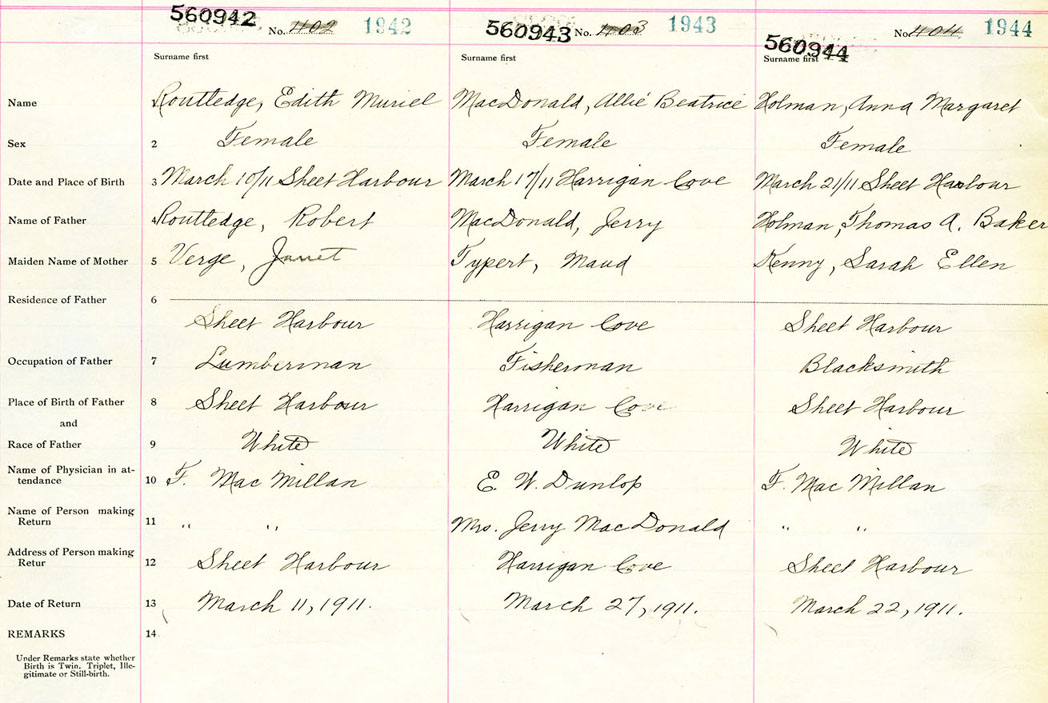 560942 No. 402 1942 560943 No. 403 1943 560944 No. 404 1944
Surname first Surname first Surname first
Name 1 Routledge, Edith Muriel MacDonald, Allie Beatrice Holman, Anna Margaret
Sex 2 Female Female Female
Date and Place of Birth 3 March 10/11 Sheet Harbour March 17/11 Harrigan Cove March 21/11 Sheet Harbour
Name of Father 4 Routledge, Robert MacDonald, Jerry Holman, Thomas A. Baker
Maiden Name of Mother 5 Verge, Janet Typert, Maud Kenny, Sarah Ellen
Residence of Father 6
Sheet Harbour Harrigan Cove Sheet Harbour
Occupation of Father 7 Lumberman Fisherman Blacksmith
Place of Birth of Father 8 Sheet Harbour Harrigan Cove Sheet Harbour
and
Race of Father 9 White White White
Name of Physician in at-
tendance 10 F. MacMillan E. W. Dunlop F. MacMillan
Name of Person making
Return 11 " " Mrs. Jerry MacDonald " "
Address of Person making
Retur 12 Sheet Harbour Harrigan Cove Sheet Harbour
Date of Return 13 March 11, 1911. March 27, 1911. March 22, 1911.
REMARKS 14
Under Remarks state whether
Birth is Twin, Triplet, Ille-
gitimate or Still-birth.